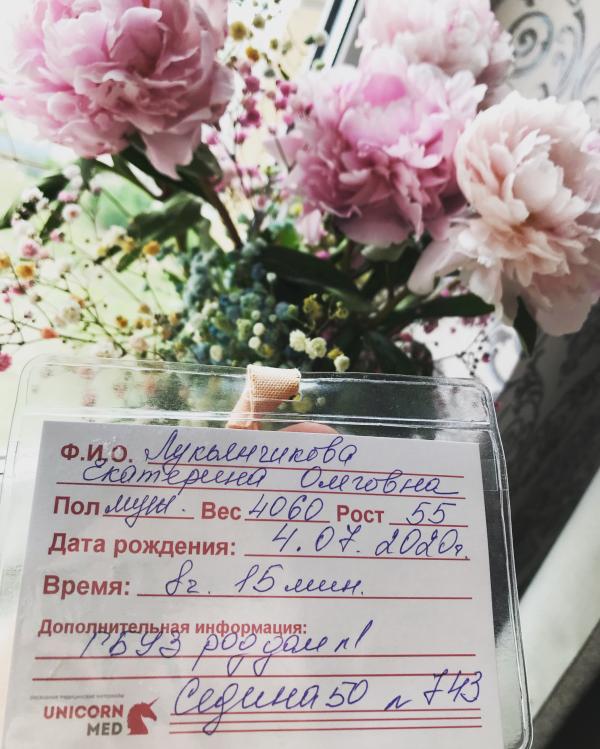 Ф.И.О. Лукьянчикова
Екатерина Олеговна
Пол муж. Вес 4060 Рост 55
Дата рождения: 4.07.2020г.
Время: 8г. 15 мин.
Дополнительная информация:
ГБУЗ род дом n1
Седина 50 n 743
UNICORN
MED